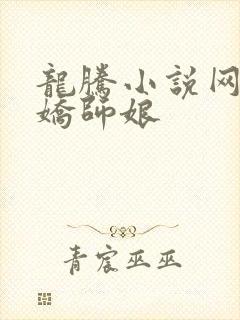 龍騰小説网
嬌師娘
青宸巫巫